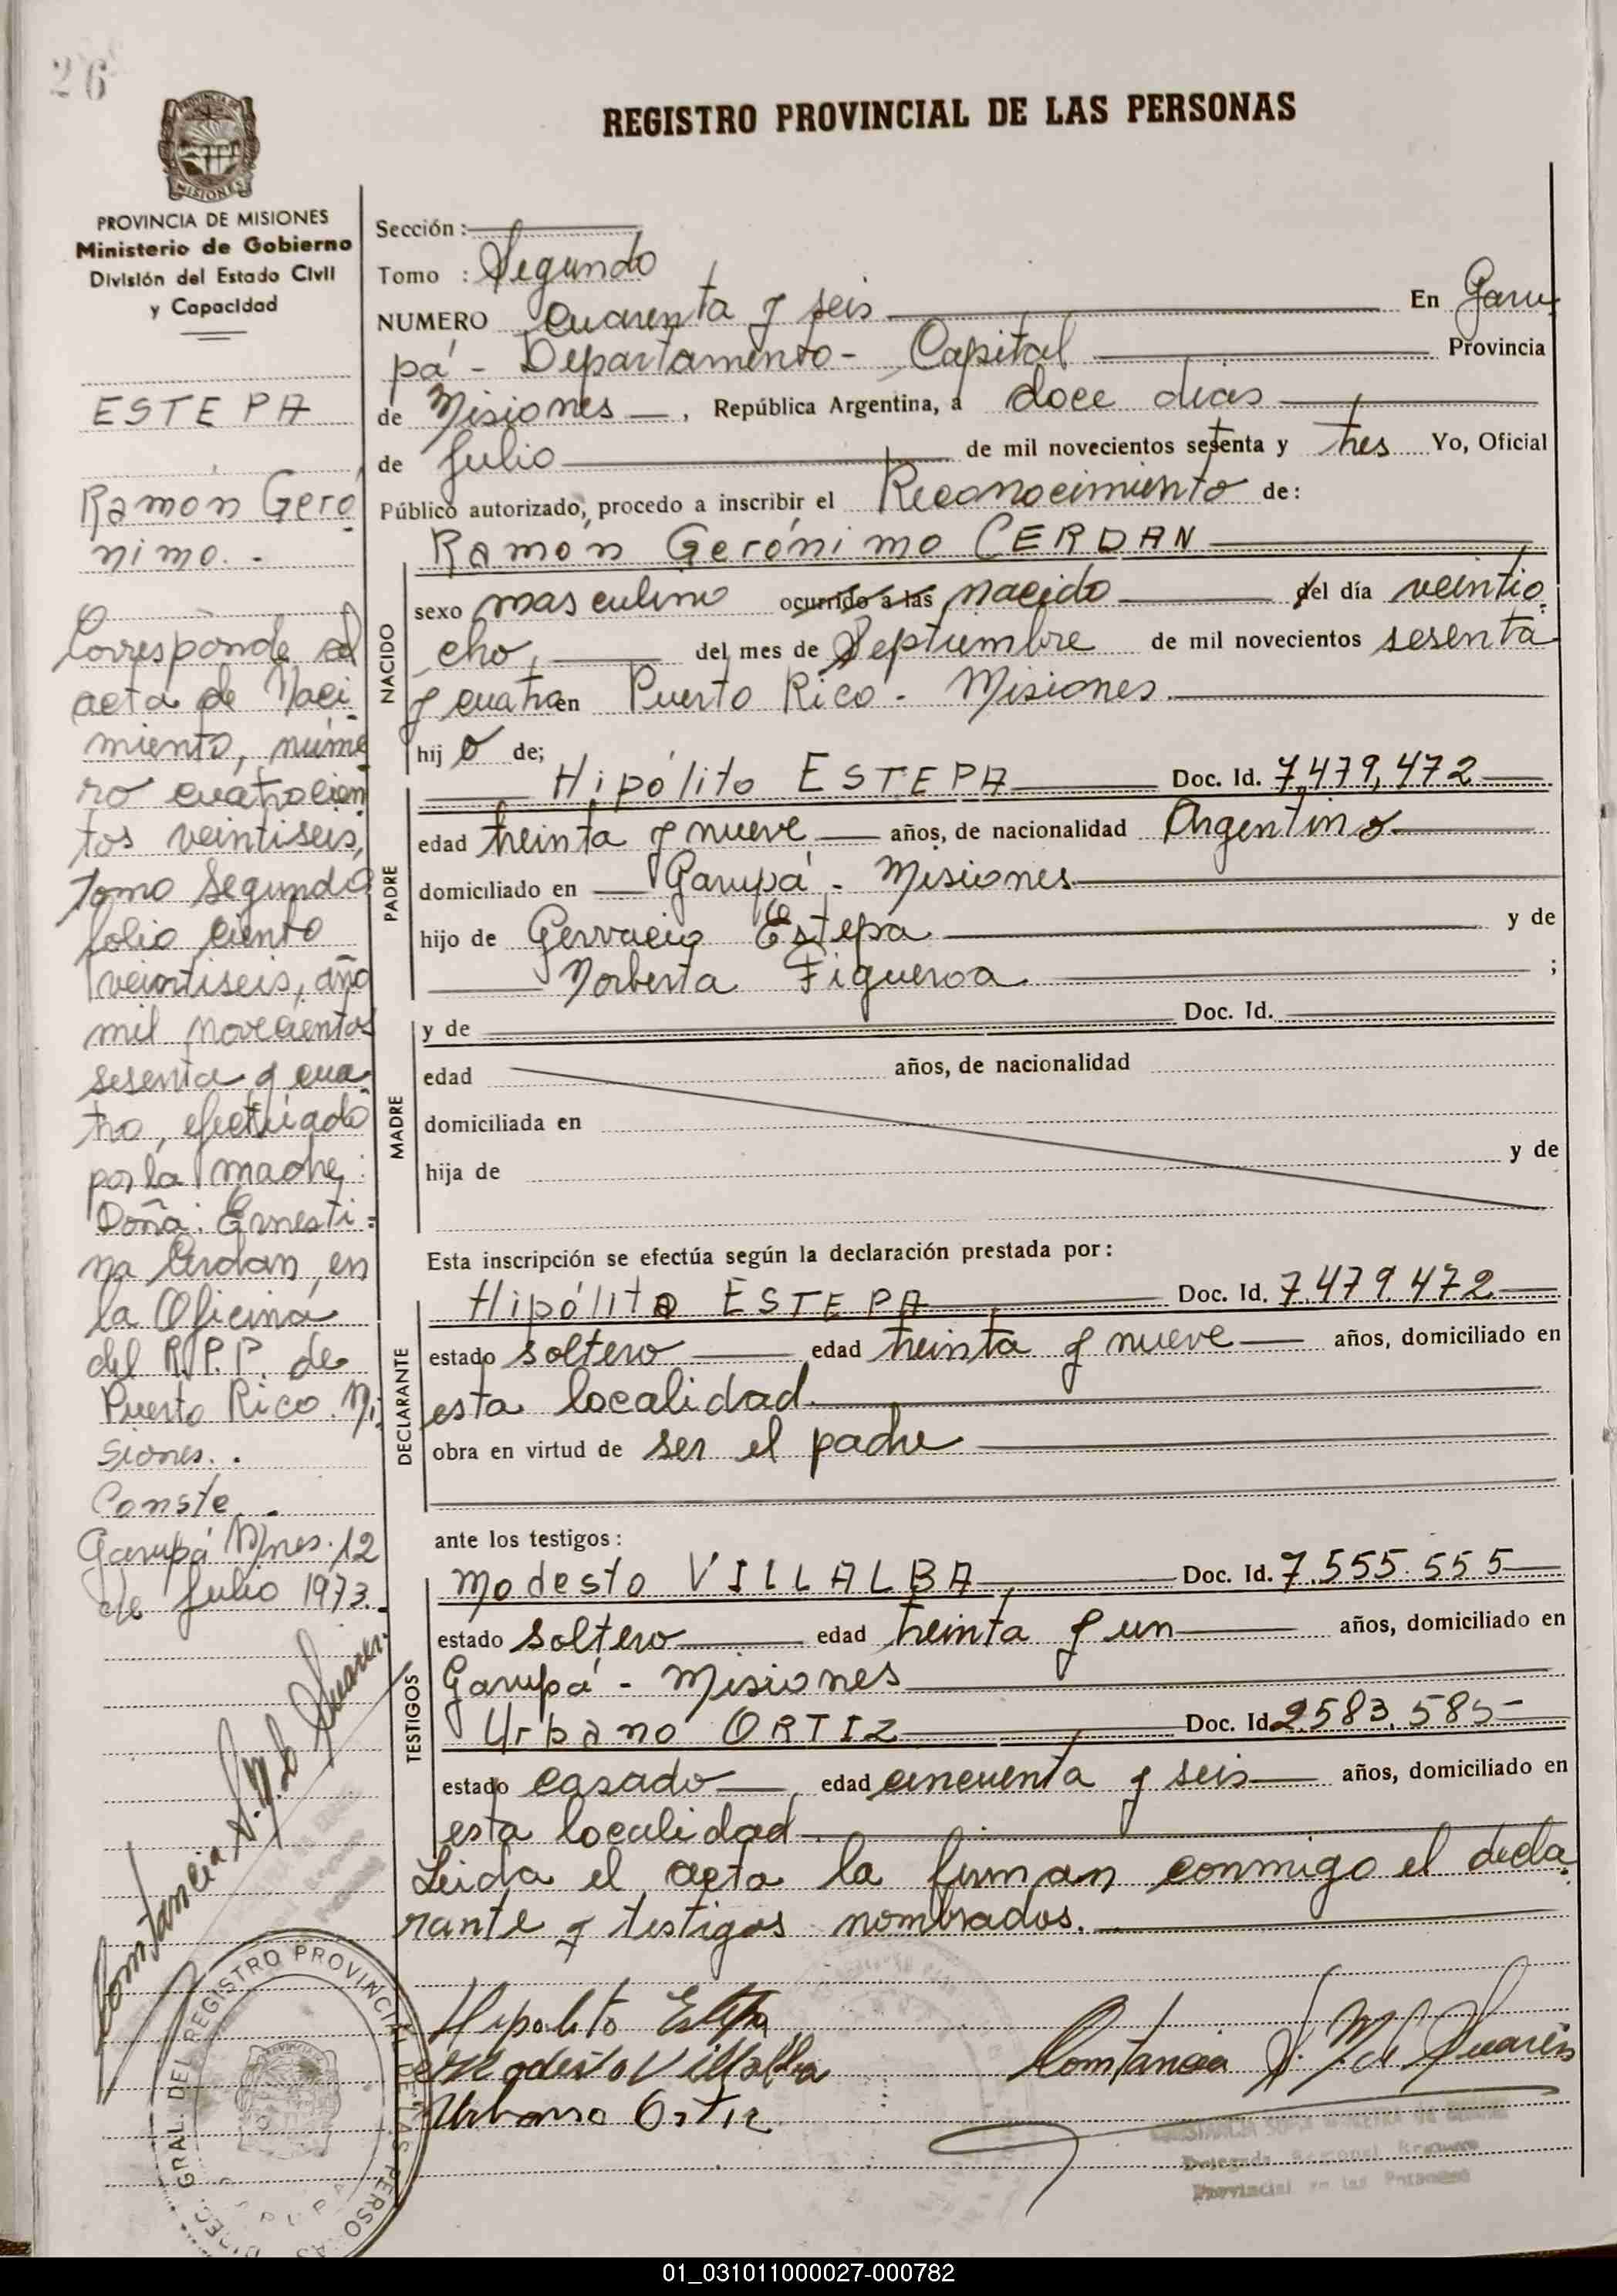 26
REGISTRO PROVINCIAL DE LAS PERSONAS
MISIONES
PROVINCIA DE MISIONES
Ministerio de Gobierno
División del Estado Civil
y Capacidad
ESTEPA
Ramón Geró-
nimo.-
Corresponde al
acta de Naci-
miento, núme
ro cuatrocien
tos veintiseis,
tomo Segundo
folio ciento
veintiseis, año
mil novecientos
sesenta y cua-
tro, efectuado
por la madre,
Doña: Ernesti-
na Cerdan, en
la Oficina
del R.P.P. de
Puerto Rico. Mi-
siones..
Conste.-
Garupá Mnes. 12
de Julio 1973.-
Sección :
Tomo : Segundo
NUMERO cuarenta y seis En Garu-
pá - Departamento - Capital Provincia
de Misiones , República Argentina, a doce dias
de Julio de mil novecientos setenta y tres Yo, Oficial
Público autorizado, procedo a inscribir el Reconocimiento de:
Ramón Gerónimo CERDAN
NACIDO
sexo masculino ocurrido a las nacido del día veintio-
cho, del mes de Septiembre de mil novecientos sesenta
y cuatro en Puerto Rico - Misiones.
hijo de;
PADRE
Hipólito ESTEPA Doc. Id. 7.479.472
edad treinta y nueve años, de nacionalidad Argentino
domiciliado en Garupá - Misiones
hijo de Gervacio Estepa y de
Norberta Figueroa ;
MADRE
y de Doc. Id.
edad años, de nacionalidad
domiciliada en
hija de y de
Esta inscripción se efectúa según la declaración prestada por:
DECLARANTE
Hipólito ESTEPA Doc. Id. 7.479.472
estado soltero edad treinta y nueve años, domiciliado en
esta localidad.
obra en virtud de ser el padre
ante los testigos:
TESTIGOS
Modesto VILLALBA Doc. Id. 7.555.555
estado soltero edad treinta y un años, domiciliado en
Garupá - Misiones
Urbano ORTIZ Doc. Id. 2.583.585-
estado casado edad cincuenta y seis años, domiciliado en
esta localidad
Leida el acta la firman conmigo el decla-
rante y testigos nombrados.
Hipolito Estepa
Modesto Villalba
Urbano Ortiz
Constancia S. M. de Suarez
Constancia S. M. de Suarez
DIREC. GRAL. DEL REGISTRO PROVINCIAL DE LAS PERSONAS
01_031011000027-000782